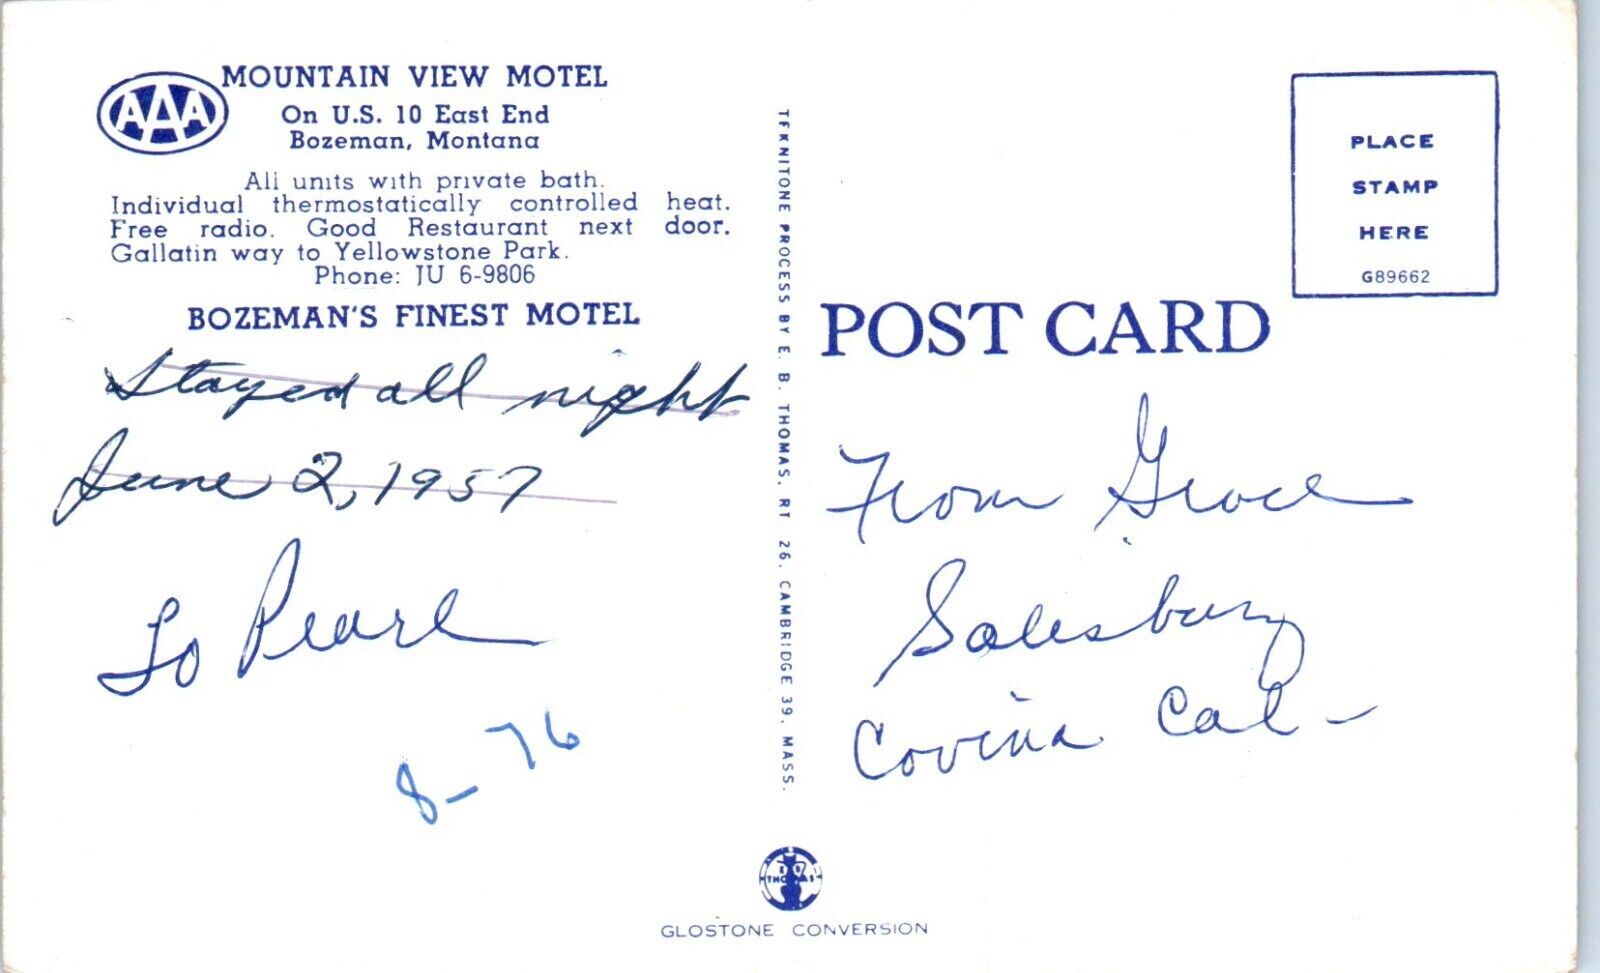 AAA
MOUNTAIN VIEW MOTEL
On U.S. 10 East End
Bozeman, Montana
All units with private bath.
Individual thermostatically controlled heat.
Free radio. Good Restaurant next door.
Gallatin way to Yellowstone Park.
Phone: JU 6-9806
BOZEMAN'S FINEST MOTEL
Stayed all night
June 2, 1957
To Pearl
8-76
TERNITONE PROCESS BY E. B. THOMAS, RT. 26, CAMBRIDGE 39, MASS.
PLACE
STAMP
HERE
G89662
POST CARD
From Grace
Salesbury
Covina Cal-
THOMAS
GLOSTONE CONVERSION